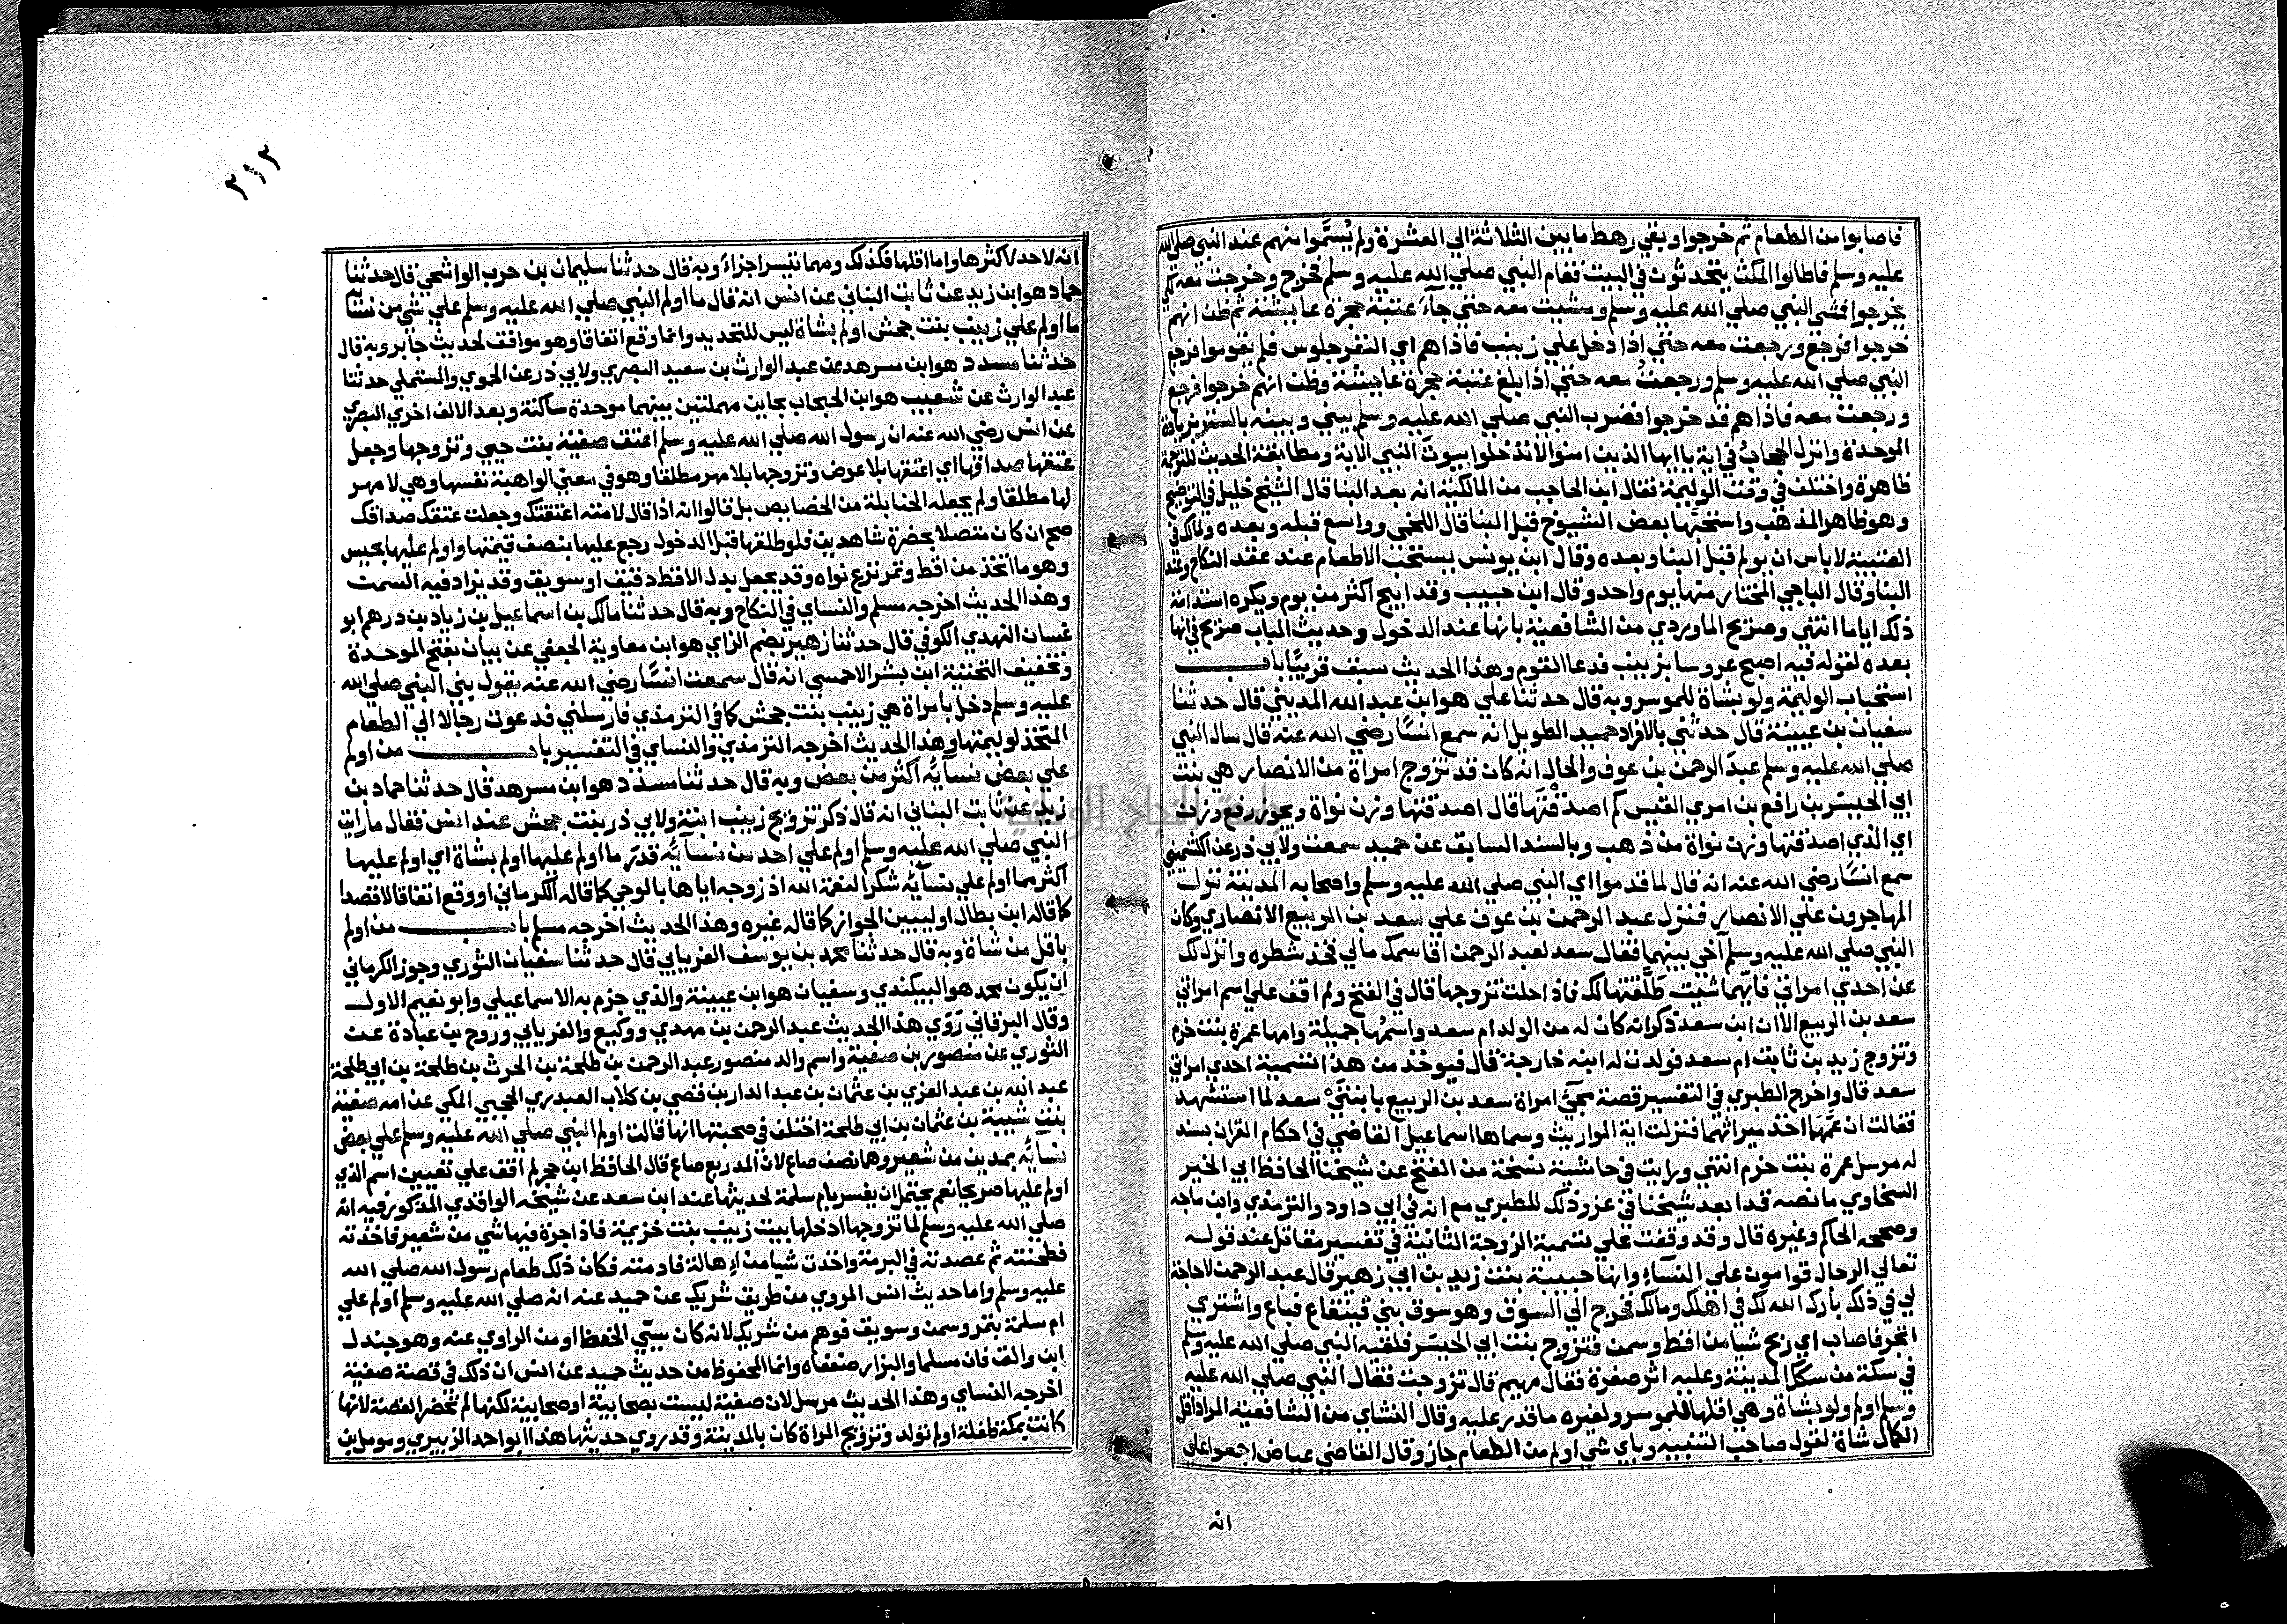 فاصابوا من الطعام ثم خرجوا وبقي رهط ما بين الثلاثة الي العشرة ولم يُسَمَّوا منهم عند النبي صلي الله
عليه وسلم فاطالوا المكث يتحدثون في البيت فقام النبي صلي الله عليه وسلم فخرج وخرجت معه لكي
يخرجوا فمشي النبي صلي الله عليه وسلم ومشيت معه حتي جآء عتبة حجرة عايشة ثم ظن انهم
خرجوا فرجع ورجعت معه حتي اذا دخل علي زينب فاذا هم اي النفر جلوس فلم يقوموا فرجع
النبي صلي الله عليه وسلم ورجعتُ معه حتي اذا بلغ عتبة حجرة عايشة وظن انهم خرجوا فرجع
ورجعت معه فاذا هم قد خرجوا فضرب النبي صلي الله عليه وسلم بيني وبينه بالستر بزيادة
الموحدة وانزل الحجابُ في اية ياايها الذين امنوا لا تدخلوا بيوتَ النبي الاية ومطابقة الحديث للترجمة
ظاهرة واختلف في وقت الوليمة فقال ابن الحاجب من المالكية انه بعد البنا قال الشيخ خليل في التوضيح
وهو ظاهر المذهب واستحبّها بعض الشيوخ قبل البنا قال اللخمي وواسع قبله وبعده ولمالك في
العتبية لا باس ان يولم قبل البنا وبعده وقال ابن يونس يستحب الاطعام عند عقد النكاح وعند
البنا وقال الباجي المختار منها يوم واحد وقال ابن حبيب وقد ابيح اكثر من يوم ويكره استدامة
ذلك اياما انتهي وصرّح الماوردي من الشافعية بانها عند الدخول وحديث الباب صريح في انها
بعده لقوله فيه اصبح عروسا بزينب فدعا القوم وهذا الحديث سبق قريبًا باب
استحباب الوليمة ولو بشاة للموسر وبه قال حدثنا علي هو ابن عبد الله المديني قال حدثنا
سفيان بن عيينة قال حدثني بالافراد حميد الطويل انه سمع انسًا رضي الله عنه قال سال النبي
صلي الله عليه وسلم عبدَ الرحمن بن عوف والحال انه كان قد تزوج امراة من الانصار هي بنت
ابي الحيسر بن رافع بن امري القيس كم اصدقتَها قال اصدقتها وزن نواة ويجوز رفع وزن
اي الذي اصدقتها وزن نواة من ذهب وبالسند السابق عن حميد سمعت ولابي ذر عن الكشميهني
سمع انسًا رضي الله عنه انه قال لما قدموا اي النبي صلي الله عليه وسلم واصحابه المدينة نزل
المهاجرون علي الانصار فنزل عبد الرحمن بن عوف علي سعد بن الربيع الانصاري وكان
النبي صلي الله عليه وسلم آخي بينهما فقال سعد لعبد الرحمن اقاسمك مالي فخذ شطره وانزل لك
عن احدي امراتي فايّهما شيت طَلّقتها لك فاذا حلت تزوجها قال في الفتح ولم اقف علي اسم امراتي
سعد بن الربيع الا ان ابن سعد ذكر انه كان له من الولد ام سعد واسمُها جميلة وامها عمرة بنت حزم
وتزوج زيد بن ثابت ام سعد فولدت له ابنه خارجة قال فيوخذ من هذا تسمية احدي امراتي
سعد قال واخرج الطبري في التفسير قصة مجيَّ امراة سعد بن الربيع بابنتَيْ سعد لما استشهد
فقالت ان عَمَّهما اخذ ميراثهما فنزلت اية المواريث وسماها اسماعيل القاضي في احكام القران بسند
له مرسل عمرة بنت حزم انتهي ورايت في حاشية نسخة من الفتح عن شيخنا الحافظ ابي الخير
السخاوي ما نصه قد ابعد شيخنا في عزو ذلك للطبري مع انه في ابي داود والترمذي وابن ماجه
وصححه الحاكم وغيره قال وقد وقفت علي تسمية الزوجة الثانية في تفسير مقاتل عند قوله
تعالي الرجال قوامون علي النسآءِ وانها حبيبة بنت زيد بن ابي زهير قال عبد الرحمن لا حاجة
لي في ذلك بارك الله لك في اهلك ومالك فخرج الي السوق وهو سوق بني قينقاع فباع واشتري
اتجر فاصاب اي ربح شيا من اقط وسمن فتزوج بنت ابي الحيسر فلقيه النبي صلي الله عليه وسلم
في سكة من سكك المدينة وعليه اثر صفرة فقال مهيم قال تزوجت فقال النبي صلي الله عليه
وسلم اولم ولو بشاة وهي اقلها للموسر ولغيره ما قدر عليه وقال النشاي من الشافعية المراد اقل
الكمال شاة لقول صاحب التنبيه وباي شي اولم من الطعام جاز وقال القاضي عياض اجمعوا علي
انه
٢١٢
انه لا حد لاكثرها واما اقلها فكذلك ومهما تيسر اجزاءَ وبه قال حدثنا سليمان بن حرب الواشحي قال حدثنا
حماد هو ابن زيد عن ثابت البناني عن انس انه قال ما اولم النبي صلي الله عليه وسلم علي شي من نسائه
ما اولم علي زينب بنت جحش اولم بشاة ليس للتحديد وانما وقع اتفاقا وهو موافق لحديث جابر وبه قال
حدثنا مسدد هو ابن مسرهد عن عبد الوارث بن سعيد البصري ولابي ذر عن الحموي والمستملي حدثنا
عبد الوارث عن شعيب هو ابن الحبحاب بحاين مهملتين بينهما موحدة ساكنة وبعد الالف اخري البصري
عن انس رضي الله عنه ان رسول الله صلي الله عليه وسلم اعتق صفية بنت حيي وتزوجها وجعل
عتقها صداقها اي اعتقها بلا عوض وتزوجها بلا مهر مطلقا وهو في معني الواهبة نفسها وهي لا مهر
لها مطلقا ولم يجعله الحنابلة من الخصايص بل قالوا انه اذا قال لامته اعتقتك وجعلت عتقك صداقك
صح ان كان متصلا بحضرة شاهدين فلو طلقها قبل الدخول رجع عليها بنصف قيمتها واولم عليها بحيس
وهو ما اتخذ من اقط وتمر نزع نواه وقد يجعل بدل الاقط دقيق او سويق وقد يزاد فيه السمن
وهذا الحديث اخرجه مسلم والنساي في النكاح وبه قال حدثنا مالك بن اسماعيل بن زياد بن درهم ابو
غسان النهدي الكوفي قال حدثنا زهير بضم الزاي هو ابن معاوية الجعفي عن بيان بفتح الموحدة
وتخفيف التحتية ابن بشر الاحمسي انه قال سمعت انسًا رضي الله عنه يقول بني النبي صلي الله
عليه وسلم دخل بامراة هي زينب بنت جحش كما في الترمذي فارسلني فدعوت رجالا الي الطعام
المتخذ لوليمتها وهذا الحديث اخرجه الترمذي والنساي في التفسير باب من اولم
علي بعض نسآيه اكثر من بعض وبه قال حدثنا مسدد هو ابن مسرهد قال حدثنا حماد بن
زيد عن ثابت البناني انه قال ذكر تزويج زينب ابنة ولابي ذر بنت جحش عند انس فقال ما رايت
النبي صلي الله عليه وسلم اولم علي احد من نسآيه قدرَ ما اولم عليها اولم بشاة اي اولم عليها
اكثر مما اولم علي نسآيه شكرا لنعمة الله اذ زوجه اياها بالوحي كما قاله الكرماني او وقع اتفاقا لا قصدا
كما قاله ابن بطال او ليبين الجواز كما قاله غيره وهذا الحديث اخرجه مسلم باب من اولم
باقل من شاة وبه قال حدثنا محمد بن يوسف الفريابي قال حدثنا سفيان الثوري وجوز الكرماني
ان يكون محمد هو البيكندي وسفيان هو ابن عيينة والذي جزم به الاسماعيلي وابو نعيم الاول
وقال البرقاني رَوَي هذا الحديث عبد الرحمن بن مهدي ووكيع والفريابي وروح بن عبادة عن
الثوري عن منصور بن صفية واسم والد منصور عبد الرحمن بن طلحة بن الحرث بن طلحة بن ابي طلحة
عبد الله بن عبد العزي بن عثمان بن عبد الدار بن قصي بن كلاب العبدري الحجبي المكي عن امه صفية
بنت شيبة بن عثمان بن ابي طلحة اختلف في صحبتها انها قالت اولم النبي صلي الله عليه وسلم علي بعض
نسآيه بمدين من شعير وهما نصف صاع لان المد ربع صاع قال الحافظ ابن حجر لم اقف علي تعيين اسم الذي
اولم عليها صريحا نعم يحتمل ان يفسر بام سلمة لحديثها عند ابن سعد عن شيخه الواقدي المذكور فيه انه
صلي الله عليه وسلم لما تزوجها ادخلها بيت زينب بنت خزيمة فاذا جرة فيها شي من شعير فاخذته
فطحنته ثم عصدته في البرمة واخذت شيا من اهالة فادمته فكان ذلك طعام رسول الله صلي الله
عليه وسلم واما حديث انس المروي من طريق شريك عن حميد عنه انه صلي الله عليه وسلم اولم علي
ام سلمة بتمر وسمن وسويق فوهم من شريك لانه كان سيّي الحفظ او من الراوي عنه وهو جندل
ابن والق فان مسلما والبزار ضعفاه وانما المحفوظ من حديث حميد عن انس ان ذلك في قصة صفية
اخرجه النساي وهذا الحديث مرسل لان صفية ليست بصحابية او صحابية لكنها لم تحضر القصة لانها
كانت بمكة طفلة او لم تولد وتزويج المراة كان بالمدينة وقد روي حديثها هذا ابو احمد الزبيري ومومل بن